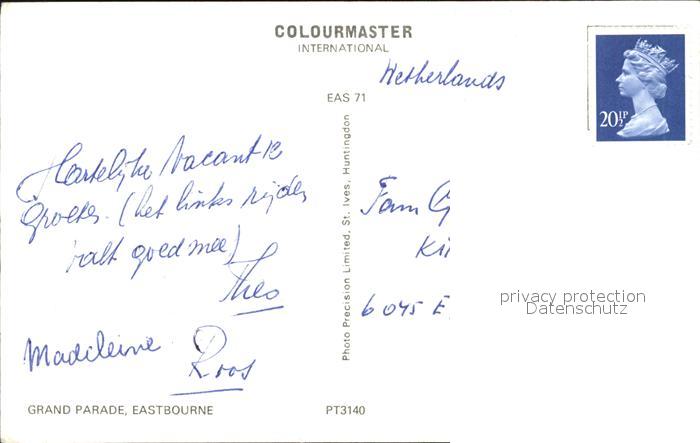 COLOURMASTER
INTERNATIONAL
Netherlands
EAS 71
20½P
Hartelijke Vacantie
Groeten. (het links rijden
valt goed mee)
Theo
Madeleine Roos
Fam
6045 E
Photo Precision Limited, St. Ives, Huntingdon
privacy protection
Datenschutz
GRAND PARADE, EASTBOURNE
PT3140